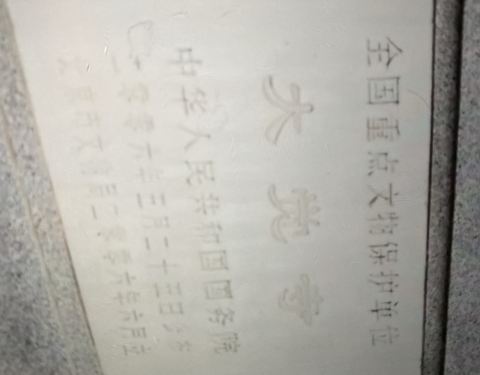 全国重点文物保护单位
大觉寺
中华人民共和国国务院
二零零六年五月二十五日公布
市文物局二零零六年六月立